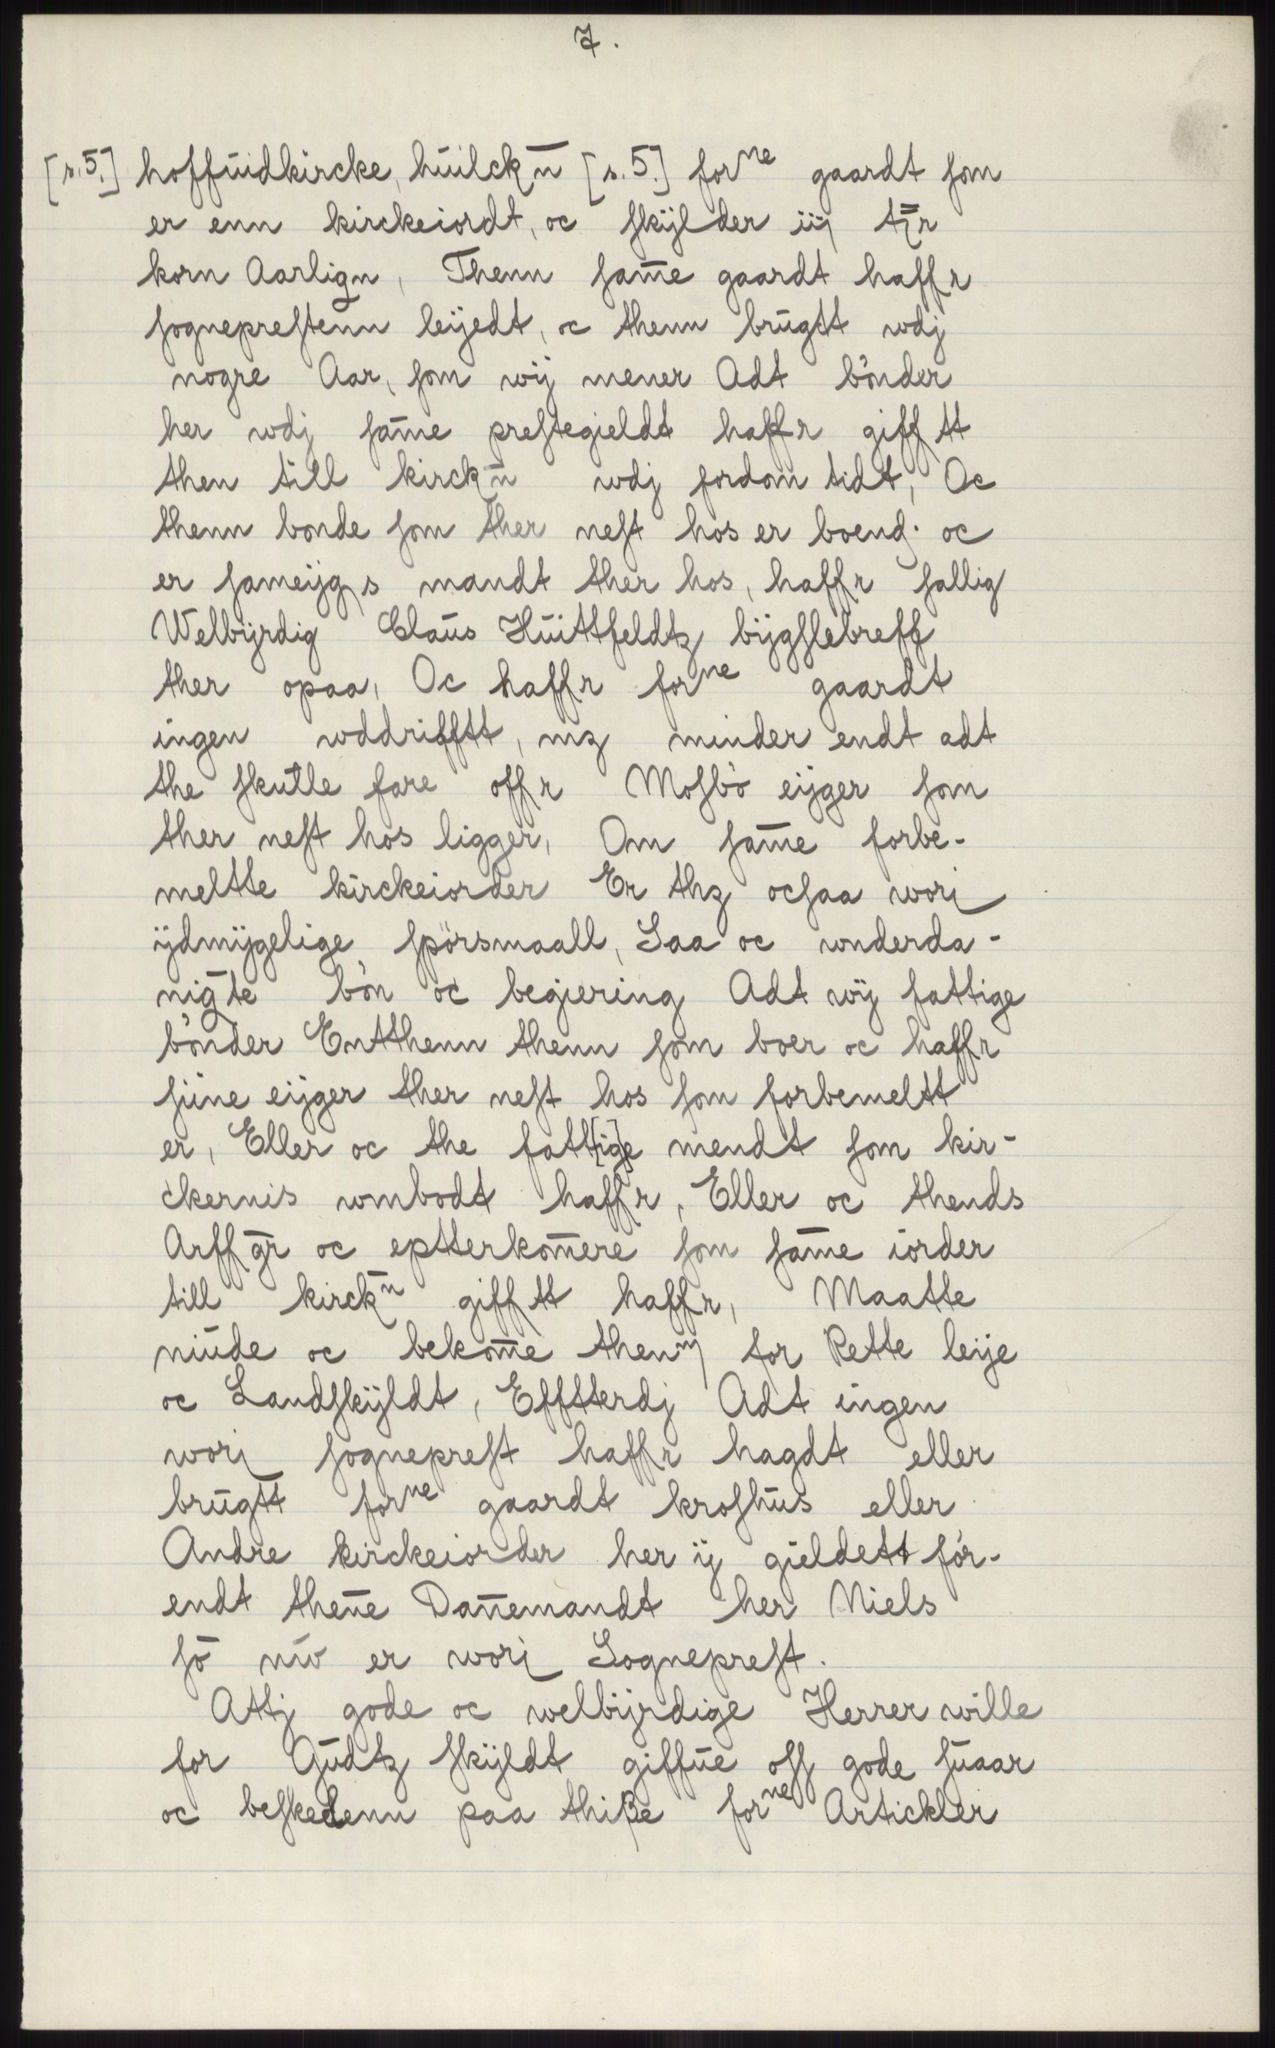 7.
[s.5.] hoffuidkircke, huilckn̄ [s.5.] forne gaardt som
er enn kirckeiordt, oc skÿlder iij tr̄
korn Aarlign, Thenn sam̄e gaardt haffr
sogneprestenn leÿedt, oc thenn brugtt wdj
nogre Aar, som wÿ mener Adt bönder
her wdj sam̄e prestegieldt haffr gifftt
then till kirckn̄ wdj fordom tidt, Oc
thenn bonde som ther nest hos er boend. oc
er sameÿgs mandt ther hos, haffr sallig
Welbÿrdig Claus Huittfeldtz bÿgslebreff
ther opaa, Oc haffr forne gaardt
ingen wddrifftt, mz minder endt adt
the skulle fare offr Mosbö eÿger som
ther nest hos ligger, Om sam̄e forbe-
meltte kirckeiorder Er thz ocsaa worj
ÿdmÿgelige spörsmaall, Saa oc wnderda-
nigte bön oc begiering Adt wÿ fattige
bönder Entthenn thenn som boer oc haffr
siine eÿger ther nest hos som forbemeltt
er, Eller oc the fatt[ig]e mendt som kir-
ckernis wmbodt haffr, Eller oc thends
Arffgr̄ oc eptterkom̄ere som sam̄e iorder
till kirckn̄ gifftt haffr, Maatte
niude oc bekom̄e thenn̄ for Rette leije
oc Landskÿldt, Efftterdj Adt ingen
worj sogneprest haffr hagdt eller
brugtt forne gaardt kroshus eller
Andre kirckeiorder her ÿ gieldett för-
endt then̄e Dan̄emandt her Niels
sō nw er worj Sogneprest.
Attj gode oc welbÿrdige Herrer wille
for Gudtz skÿldt giffue oss gode suaar
oc beskedenn paa thiße forne Artickler